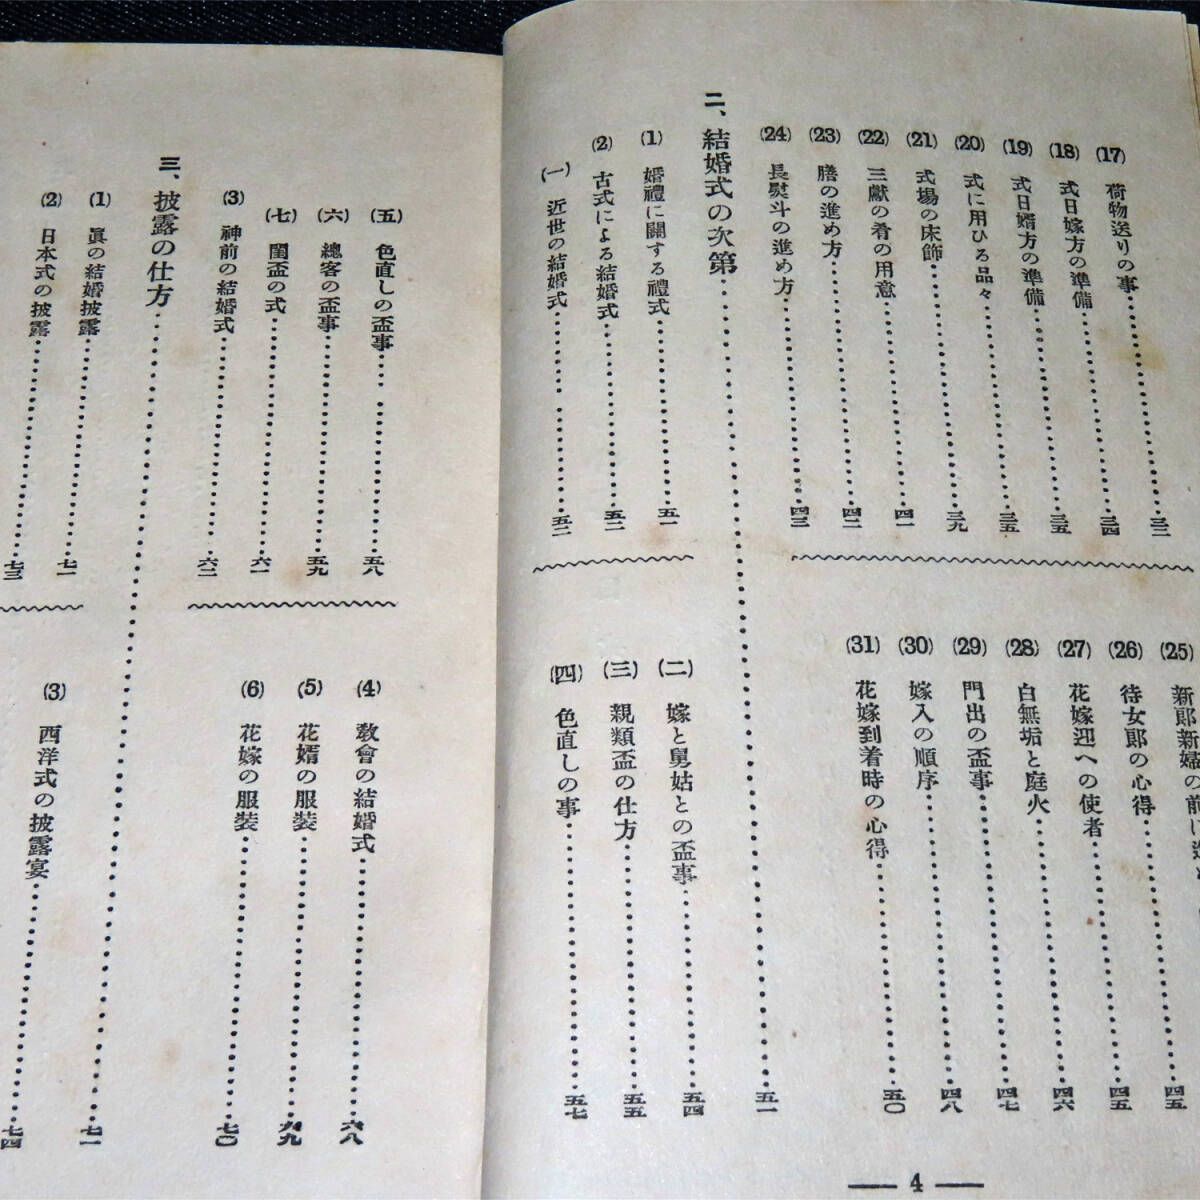 (17) 荷物送りの事……三三
(18) 式日嫁方の準備……三四
(19) 式日婿方の準備……三五
(20) 式に用ひる品々……三五
(21) 式場の床飾……三九
(22) 三獻の肴の用意……四一
(23) 膳の進め方……四二
(24) 長熨斗の進め方……四三
(25) 新郞新婦の前に……四五
(26) 待女郞の心得……四五
(27) 花嫁迎への使者……四六
(28) 白無垢と庭火……四七
(29) 門出の盃事……四八
(30) 嫁入の順序
(31) 花嫁到着時の心得……五〇
二、結婚式の次第……五一
(1) 婚禮に關する禮式……五一
(2) 古式による結婚式……五二
(一) 近世の結婚式……五二
(二) 嫁と舅姑との盃事……五四
(三) 親類盃の仕方……五五
(四) 色直しの事……五七
— 4 —
(五) 色直しの盃事……五八
(六) 總客の盃事……五九
(七) 閨盃の式……六一
(3) 神前の結婚式……六二
(4) 敎會の結婚式……六八
(5) 花婿の服裝……六九
(6) 花嫁の服裝……七〇
三、披露の仕方……七一
(1) 眞の結婚披露……七一
(2) 日本式の披露……七三
(3) 西洋式の披露宴……七四